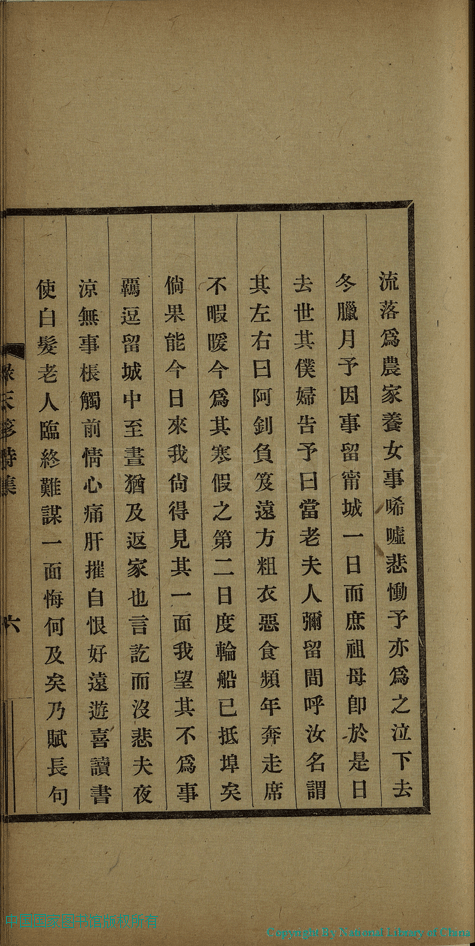 流落爲農家養女事唏噓悲慟予亦爲之泣下去
冬臘月予因事留甯城一日而庶祖母卽於是日
去世其僕婦吿予曰當老夫人彌留間呼汝名謂
其左右曰阿釗負笈遠方粗衣惡食頻年奔走席
不暇暖今爲其寒假之第二日度輪船已抵埠矣
倘果能今日來我尙得見其一面我望其不爲事
羈逗留城中至晝猶及返家也言訖而沒悲夫夜
涼無事棖觸前情心痛肝摧自恨好遠遊喜讀書
使白髮老人臨終難謀一面悔何及矣乃賦長句
六
Copyright By National Library of China